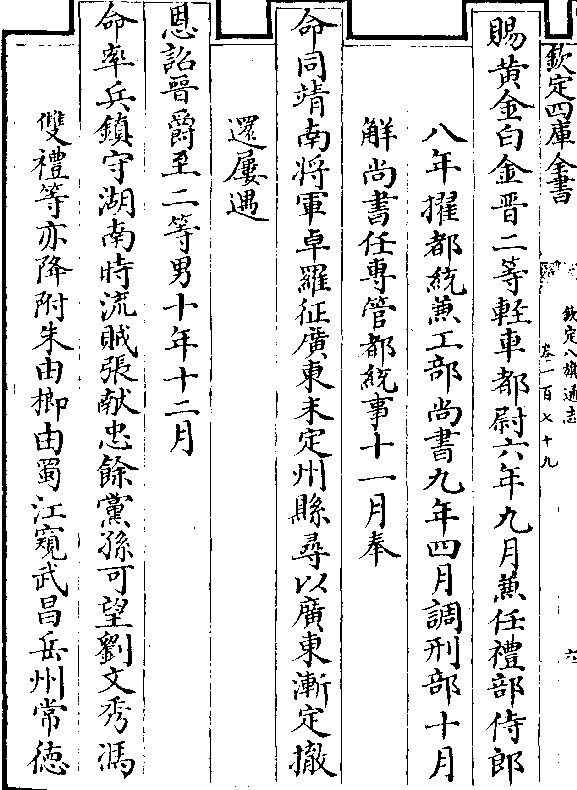 欽定四庫全書
欽定八旗通志
卷一百七十九
六
賜黄金白金晋二等輕車都尉六年九月兼任禮部侍郎
八年擢都統兼工部尚書九年四月調刑部十月
解尚書任專管都統事十一月奉
命同靖南將軍卓羅征廣東未定州縣尋以廣東漸定撤
還屢遇
恩詔晋爵至二等男十年十二月
命率兵鎮守湖南時流賊張献忠餘黨孫可望劉文秀馮
雙禮等亦降附朱由榔由蜀江窺武昌岳州常徳